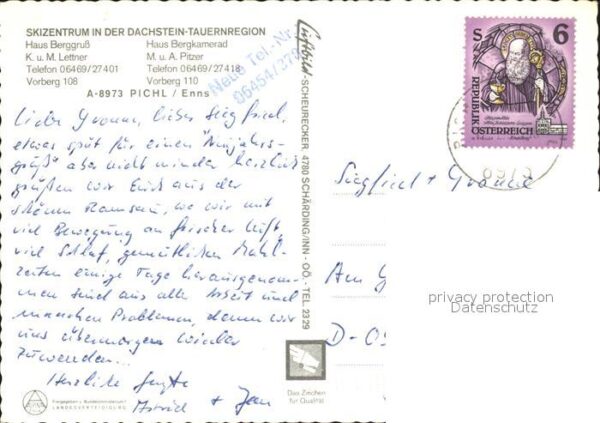 SKIZENTRUM IN DER DACHSTEIN-TAUERNREGION
Haus Berggruß Haus Bergkamerad
K. u. M. Lettner M. u. A. Pitzer
Telefon 06469/27401 Telefon 06469/27418
Vorberg 108 Vorberg 110
A-8973 PICHL / Enns
Neue Tel.-Nr.
06454/370
Liebe Yvonne, lieber Siegfried,
etwas spät für einen "Neujahrs-
gruß" aber nicht minder herzlich
grüßen wir Euch aus der
schönen Ramsau, wo wir mit
viel Bewegung an frischer Luft,
viel Schlaf, gemütlichen Mahl-
zeiten einige Tage herausgenom-
men sind aus aller Arbeit und
manchen Problemen, denen wir
uns übermorgen wieder
zuwenden...
Herzliche Grüße
Astrid + Jean
Freigegeben v. Bundesministerium f.
LANDESVERTEIDIGUNG
Luftbild - SCHEURECKER, 4780 SCHÄRDING/INN - OÖ., TEL. 2329
Das Zeichen
für Qualität
S 6
REPUBLIK
ÖSTERREICH
8973
Siegfried + Yvonne
Am
D-
privacy protection
Datenschutz